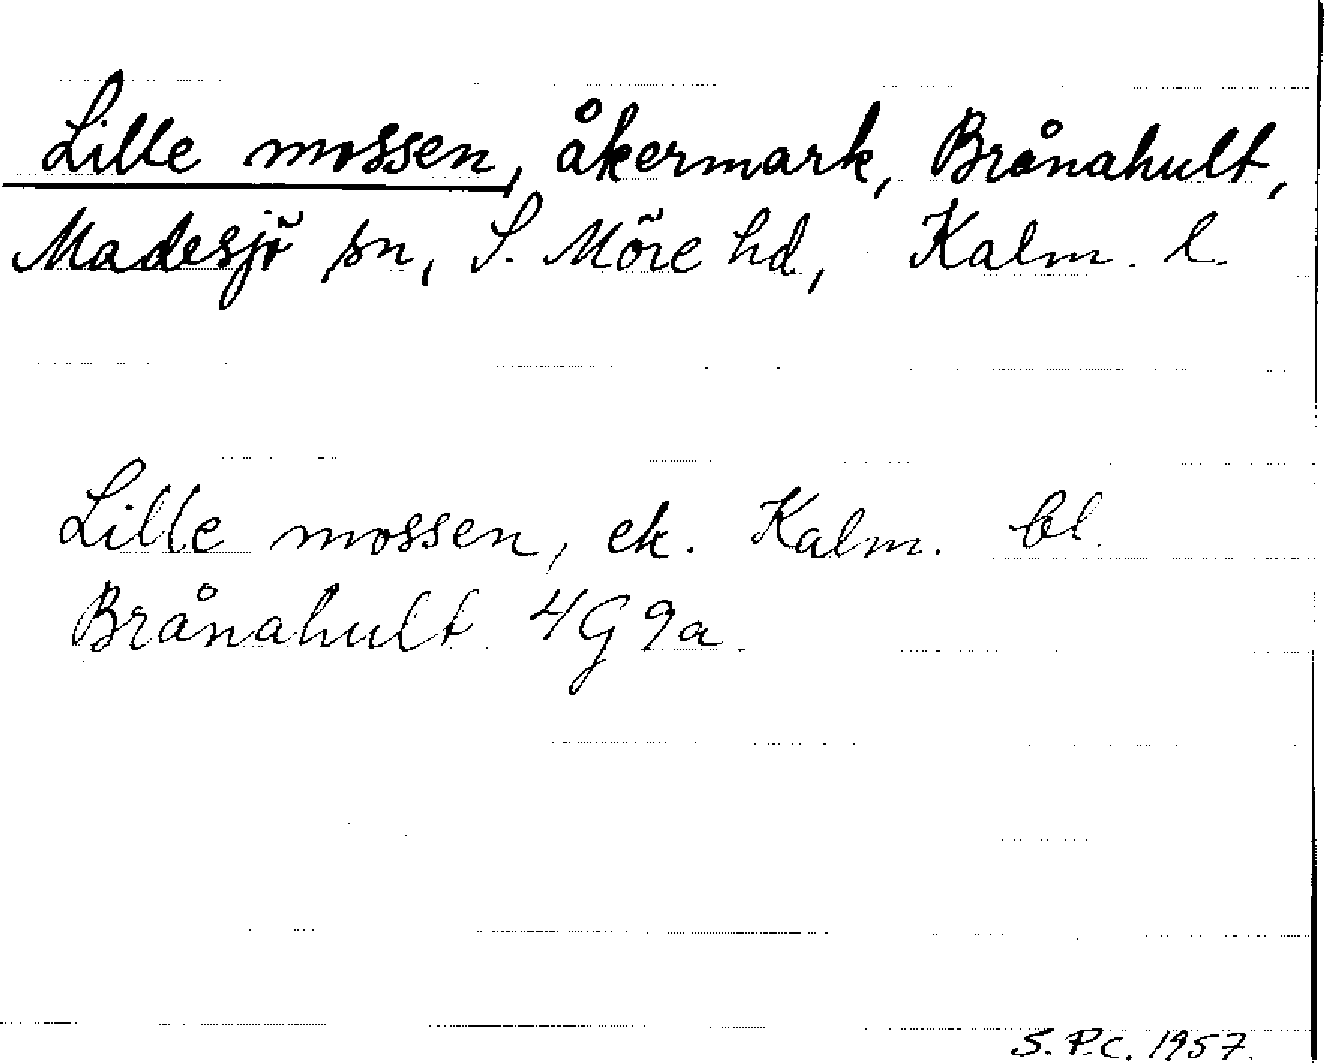 Lille mossen, åkermark, Brånahult,
Madesjö sn, S. Möre hd, Kalm. l.
Lille mossen, ek. Kalm. bl.
Brånahult 4G9a.
S.P.C. 1957.